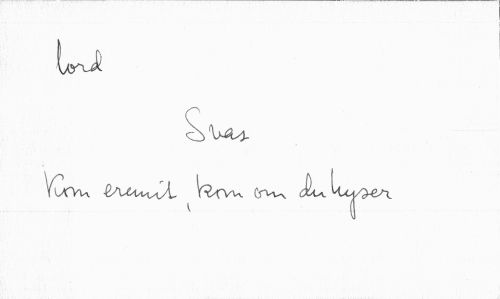 lord
Svar
Kom eremit, kom om du hyser